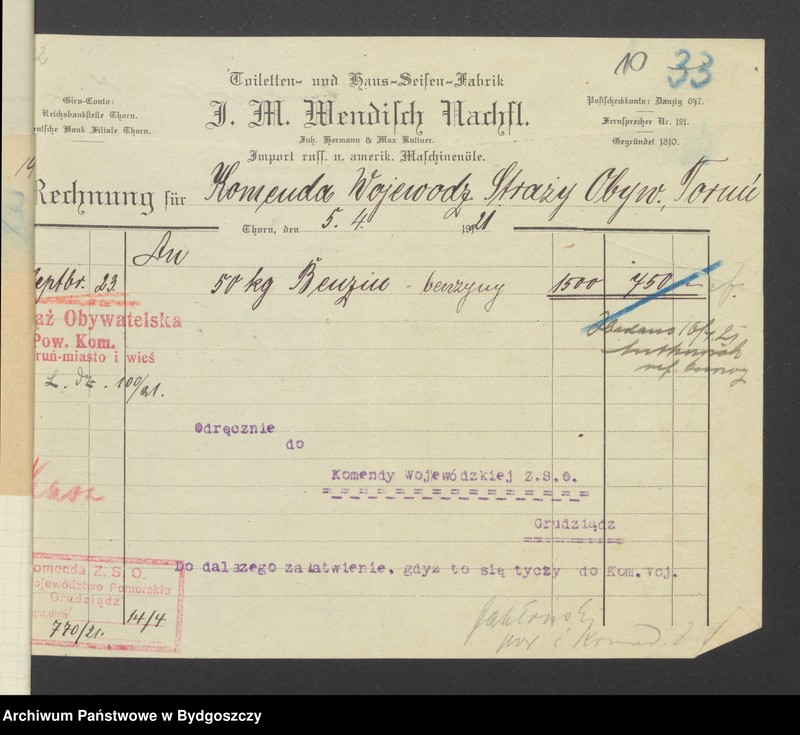 10 33
Toiletten- und Haus-Seifen-Fabrik
J. M. Wendisch Nachfl.
Inh. Hermann & Max Kuttner.
Import russ. u. amerik. Maschinenöle.
Giro-Conto:
Reichsbankstelle Thorn.
Deutsche Bank Filiale Thorn.
Postscheckkonto: Danzig 647.
Fernsprecher Nr. 121.
Gegründet 1810.
Rechnung für Komenda Wojewodz. Straży Obyw., Toruń
Thorn, den 5. 4. 1921
An
Septbr. 23 50 kg Benzin - benzyny 1500 750
aż Obywatelska
Pow. Kom.
ruń-miasto i wieś
L. dz. 100/21.
Zbadano 16/4 21
ref.
Odręcznie
do
Komendy Wojewódzkiej Z.S.O.
Grudziądz
Kasa
Do dalszego załatwienie, gdyż to się tyczy do Kom.Woj.
Komenda Z. S. O.
Województwo Pomorskie
Grudziądz
770/21. 14/4
Jabłoński
Archiwum Państwowe w Bydgoszczy